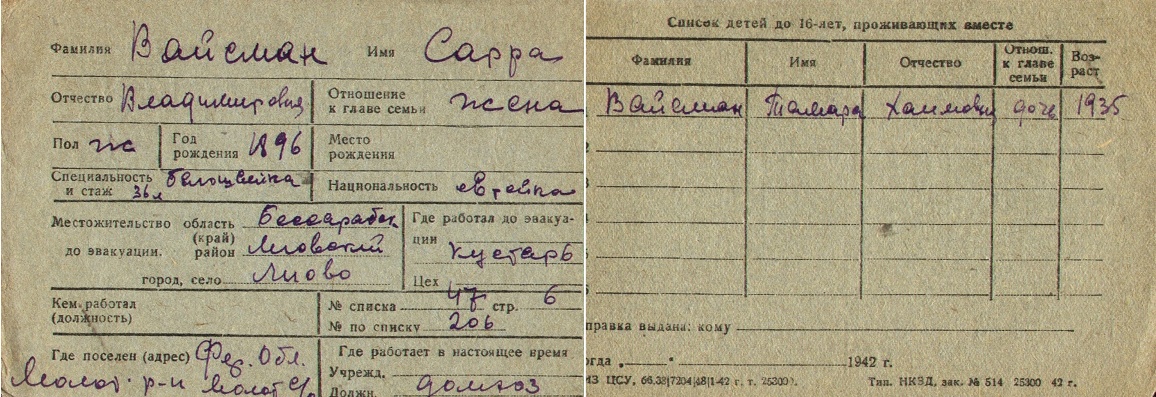 Фамилия Вайсман Имя Сарра
Отчество Владимировна Отношение к главе семьи жена
Пол ж Год рождения 1896 Место рождения
Специальность и стаж белошвейка 36 л Национальность еврейка
Местожительство до эвакуации. область (край) Бессарабск
район Леовский
город, село Леово
Где работал до эвакуации кустарь
Цех
Кем работал (должность)
№ списка 47 стр. 6
№ по списку 206
Где поселен (адрес) Фер. Обл.
Молот. р-н
Где работает в настоящее время
Учрежд.
Должн. домхоз
Список детей до 16-лет, проживающих вместе
Фамилия Имя Отчество Отнош. к главе семьи Возраст
Вайсман Тамара Хаимовна дочь 1935
правка выдана: кому
огда „ " 1942 г.
ИЗ ЦСУ, Тип. НКВД, зак. № 514 25300 42 г.